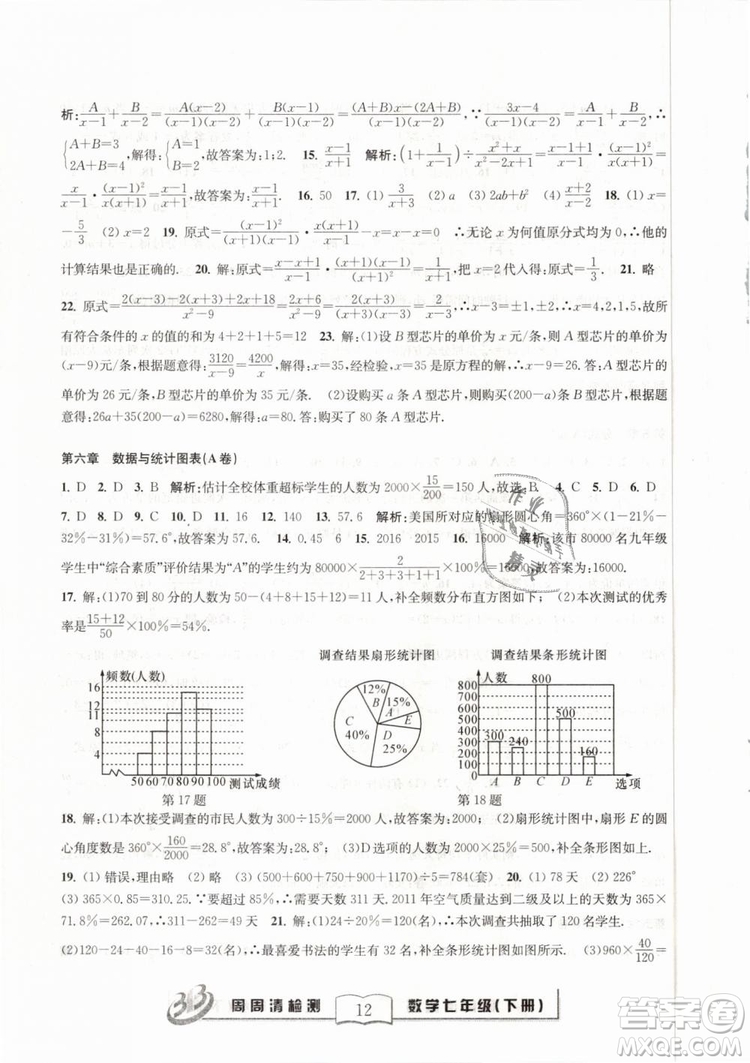 析:A/(x-1)+B/(x-2)=[A(x-2)]/[(x-1)(x-2)]+[B(x-1)]/[(x-1)(x-2)]=[(A+B)x-(2A+B)]/[(x-1)(x-2)],∵(3x-4)/[(x-1)(x-2)],∴
{A+B=3 2A+B=4,解得:{A=1 B=2,故答案为:1:2. 15. (x-1)/(x+1) 解析:(1+1/(x-1))÷(x²+x)/(x²-2x+1)=
x/(x-1)·(x-1)²/[x(x+1)]=(x-1)/(x+1),故答案为: 16. 50 17. (1)3/(x+3) (2)a (3)2ab+b² (4)(x+2)/(x-2) 18. (1)x=
-5/3 (2)x=2 19. 原式=(x-1)²/[(x+1)(x-1)]·x(x+1)/(x-1)-x=x-x=0 ∴无论 x 为何值原分式均为 0,所以他的
计算结果也是正确的. 20. 解:原式=(x-1)²/[(x+1)(x-1)]·x/(x-1)=1/(x+1),把 x=2 代入得:原式=1/3. 21. 略
22. 原式=[2(x-3)-2(x+3)+2x+18]/(x²-9)=(2x+6)/(x²-9)=2/(x-3),∴x-3=±1,±2,∴x=4,2,1,5,故所
有符合条件的 x 的值的和为 4+2+1+5=12 23. 解:(1)设 B 型芯片的单价为 x 元/条,则 A 型芯片的单价为
(x-9)元/条,根据题意得:3120/(x-9)=4200/x,解得:x=35,经检验,x=35 是原方程的解,∴x-9=26. 答:A 型芯片的
单价为 26 元/条,B 型芯片的单价为 35 元/条. (2)设购买 a 条 A 型芯片,则购买(200-a)条 B 型芯片,根据题意
得:26a+35(200-a)=6280,解得:a=80. 答:购买了 80 条 A 型芯片.
第六章 数据与统计图表(A卷)
1. D 2. D 3. B 解析:估计全校体重超标学生的人数为2000×15/200=150人,故选:B. 4. D 5. C 6. D
7. D 8. D 9. D 10. D 11. 24% 12. 16 13. 57.6 解析:美国所对应的扇形圆心角=360°×(1-21%
-32%-31%)=57.6°,故答案为:57.6° 14. 0.45 6 15. 2016 2015 16. 16000 解析:该市 80000 名九年级
学生中“综合素质”评价结果为“A”的学生约为80000×2/(2+3+1+1+...)×100%=16000,故答案为:16000.
17. 解:(1)70 到 80 分的人数为 50-(4+8+15+12)=11 人,补全频数分布直方图如图: (2)本次测试的优秀
率是(15+12)/50×100%=54%.
调查结果扇形统计图 调查结果条形统计图
频数(人数)
16
12
11
8
4
50 60 70 80 90 100 测试成绩
第 17 题
12% B A 15% E C 40% D 25%
人数
800
700
600
500
400
300
200
100
0
300 240 800 500 160
A B C D E 选项
第 18 题
18. 解:(1)本次接受调查的市民人数为 300÷15%=2000 人,故答案为:2000; (2)扇形统计图中,扇形 E 的圆
心角度数是 360°×160/2000=28.8°,故答案为:28.8°; (3)D 选项的人数为 2000×25%=500,补全条形图如图.
19. (1)错误,理由略 (2)311 (3)(500+600+750+1150+920)÷5=784(套) 20. (1)78 天 (2)226°
(3)365×0.85=310.25. 所以需要天数 311 天. 2011 年空气质量达到二级及以上天数的天数为 365×
85%=311,311-262=49(天) 21. 解:(1)24÷20%=120,∴本次抽查共抽取了 120 名学生.
(2)120-24-40-16-8=32(名),∴最喜爱书法的学生有 32 名,补全条形图如图所示. (3)960×40/120
周周清检测 12 数学七年级(下册)
作业
精灵
答案圈
MXQE.COM